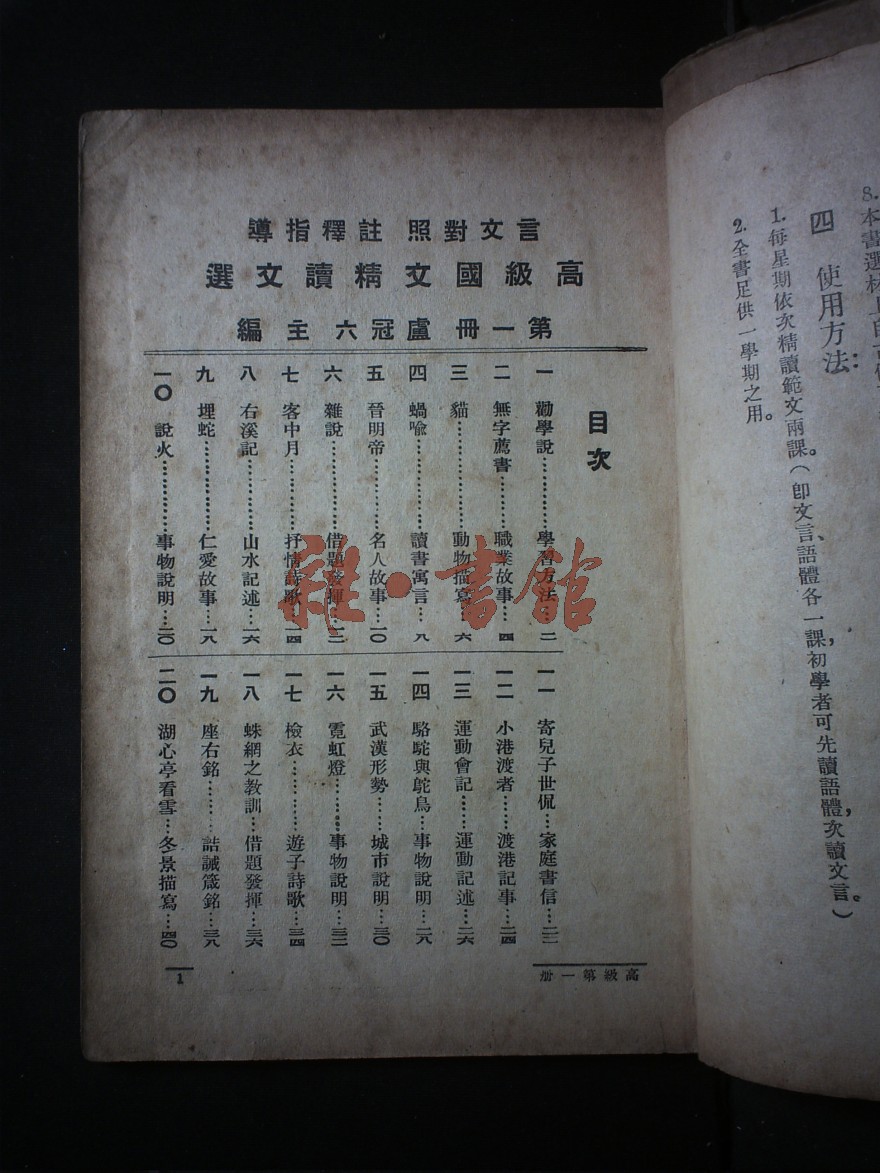 8. 本書選材
四 使用方法：
1. 每星期依次精讀範文兩課。（卽文言、語體各一課，初學者可先讀語體，次讀文言。）
2. 全書足供一學期之用。
言文對照 註釋指導
高級國文精讀文選
第一冊 盧冠六主編
目次
一 勸學說…………學習方法…二
二 無字薦書…………職業故事…四
三 貓…………動物描寫…六
四 蝸喩…………讀書寓言…八
五 晉明帝…………名人故事…一〇
六 雜說…………借題發揮…一二
七 客中月…………抒情詩歌…一四
八 右溪記…………山水記述…一六
九 埋蛇…………仁愛故事…一八
一〇 說火…………事物說明…二〇
一一 寄兒子世侃…家庭書信…二二
一二 小港渡者……渡港記事…二四
一三 運動會記……運動記述…二六
一四 駱駝與鴕鳥…事物說明…二八
一五 武漢形勢……城市說明…三〇
一六 霓虹燈………事物說明…三二
一七 檢衣………遊子詩歌…三四
一八 蛛網之教訓…借題發揮…三六
一九 座右銘……誥誡箴銘…三八
二〇 湖心亭看雪…冬景描寫…四〇
高級第一册
1
雜·書館